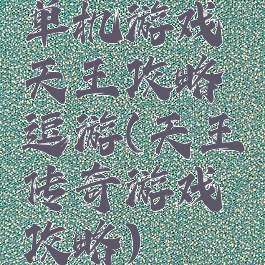 单机游戏
天王攻略
逗游(天王
传奇游戏
攻略)